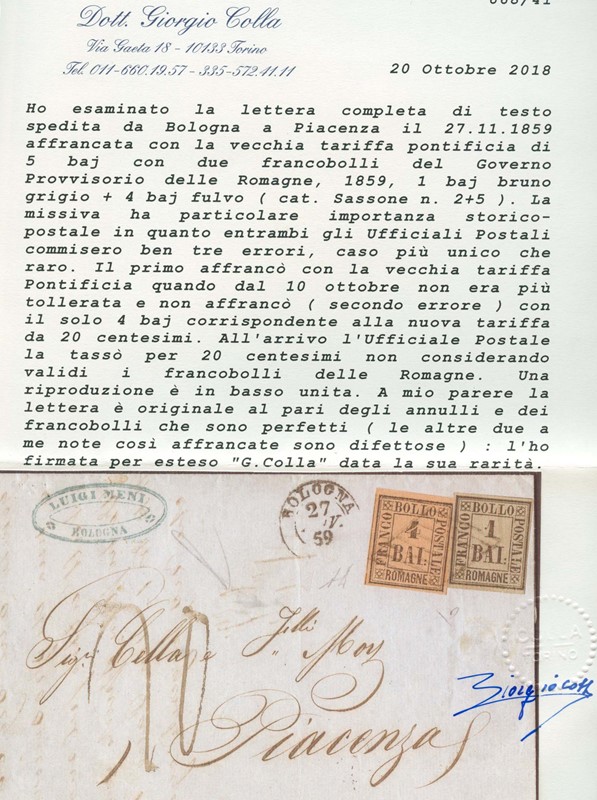 Dott. Giorgio Colla
Via Gaeta 18 - 10133 Torino
Tel. 011-660.19.57 - 335-572.41.11
20 Ottobre 2018
Ho esaminato la lettera completa di testo
spedita da Bologna a Piacenza il 27.11.1859
affrancata con la vecchia tariffa pontificia di
5 baj con due francobolli del Governo
Provvisorio delle Romagne, 1859, 1 baj bruno
grigio + 4 baj fulvo ( cat. Sassone n. 2+5 ). La
missiva ha particolare importanza storico-
postale in quanto entrambi gli Ufficiali Postali
commisero ben tre errori, caso più unico che
raro. Il primo affrancò con la vecchia tariffa
Pontificia quando dal 10 ottobre non era più
tollerata e non affrancò ( secondo errore ) con
il solo 4 baj corrispondente alla nuova tariffa
da 20 centesimi. All'arrivo l'Ufficiale Postale
la tassò per 20 centesimi non considerando
validi i francobolli delle Romagne. Una
riproduzione è in basso unita. A mio parere la
lettera è originale al pari degli annulli e dei
francobolli che sono perfetti ( le altre due a
me note così affrancate sono difettose ) : l'ho
firmata per esteso "G.Colla" data la sua rarità.
LUIGI MENI
BOLOGNA
BOLOGNA
27
59
FRANCO BOLLO POSTALE
4
BAI.
ROMAGNE
FRANCO BOLLO POSTALE
1
BAI.
ROMAGNE
Piacenza